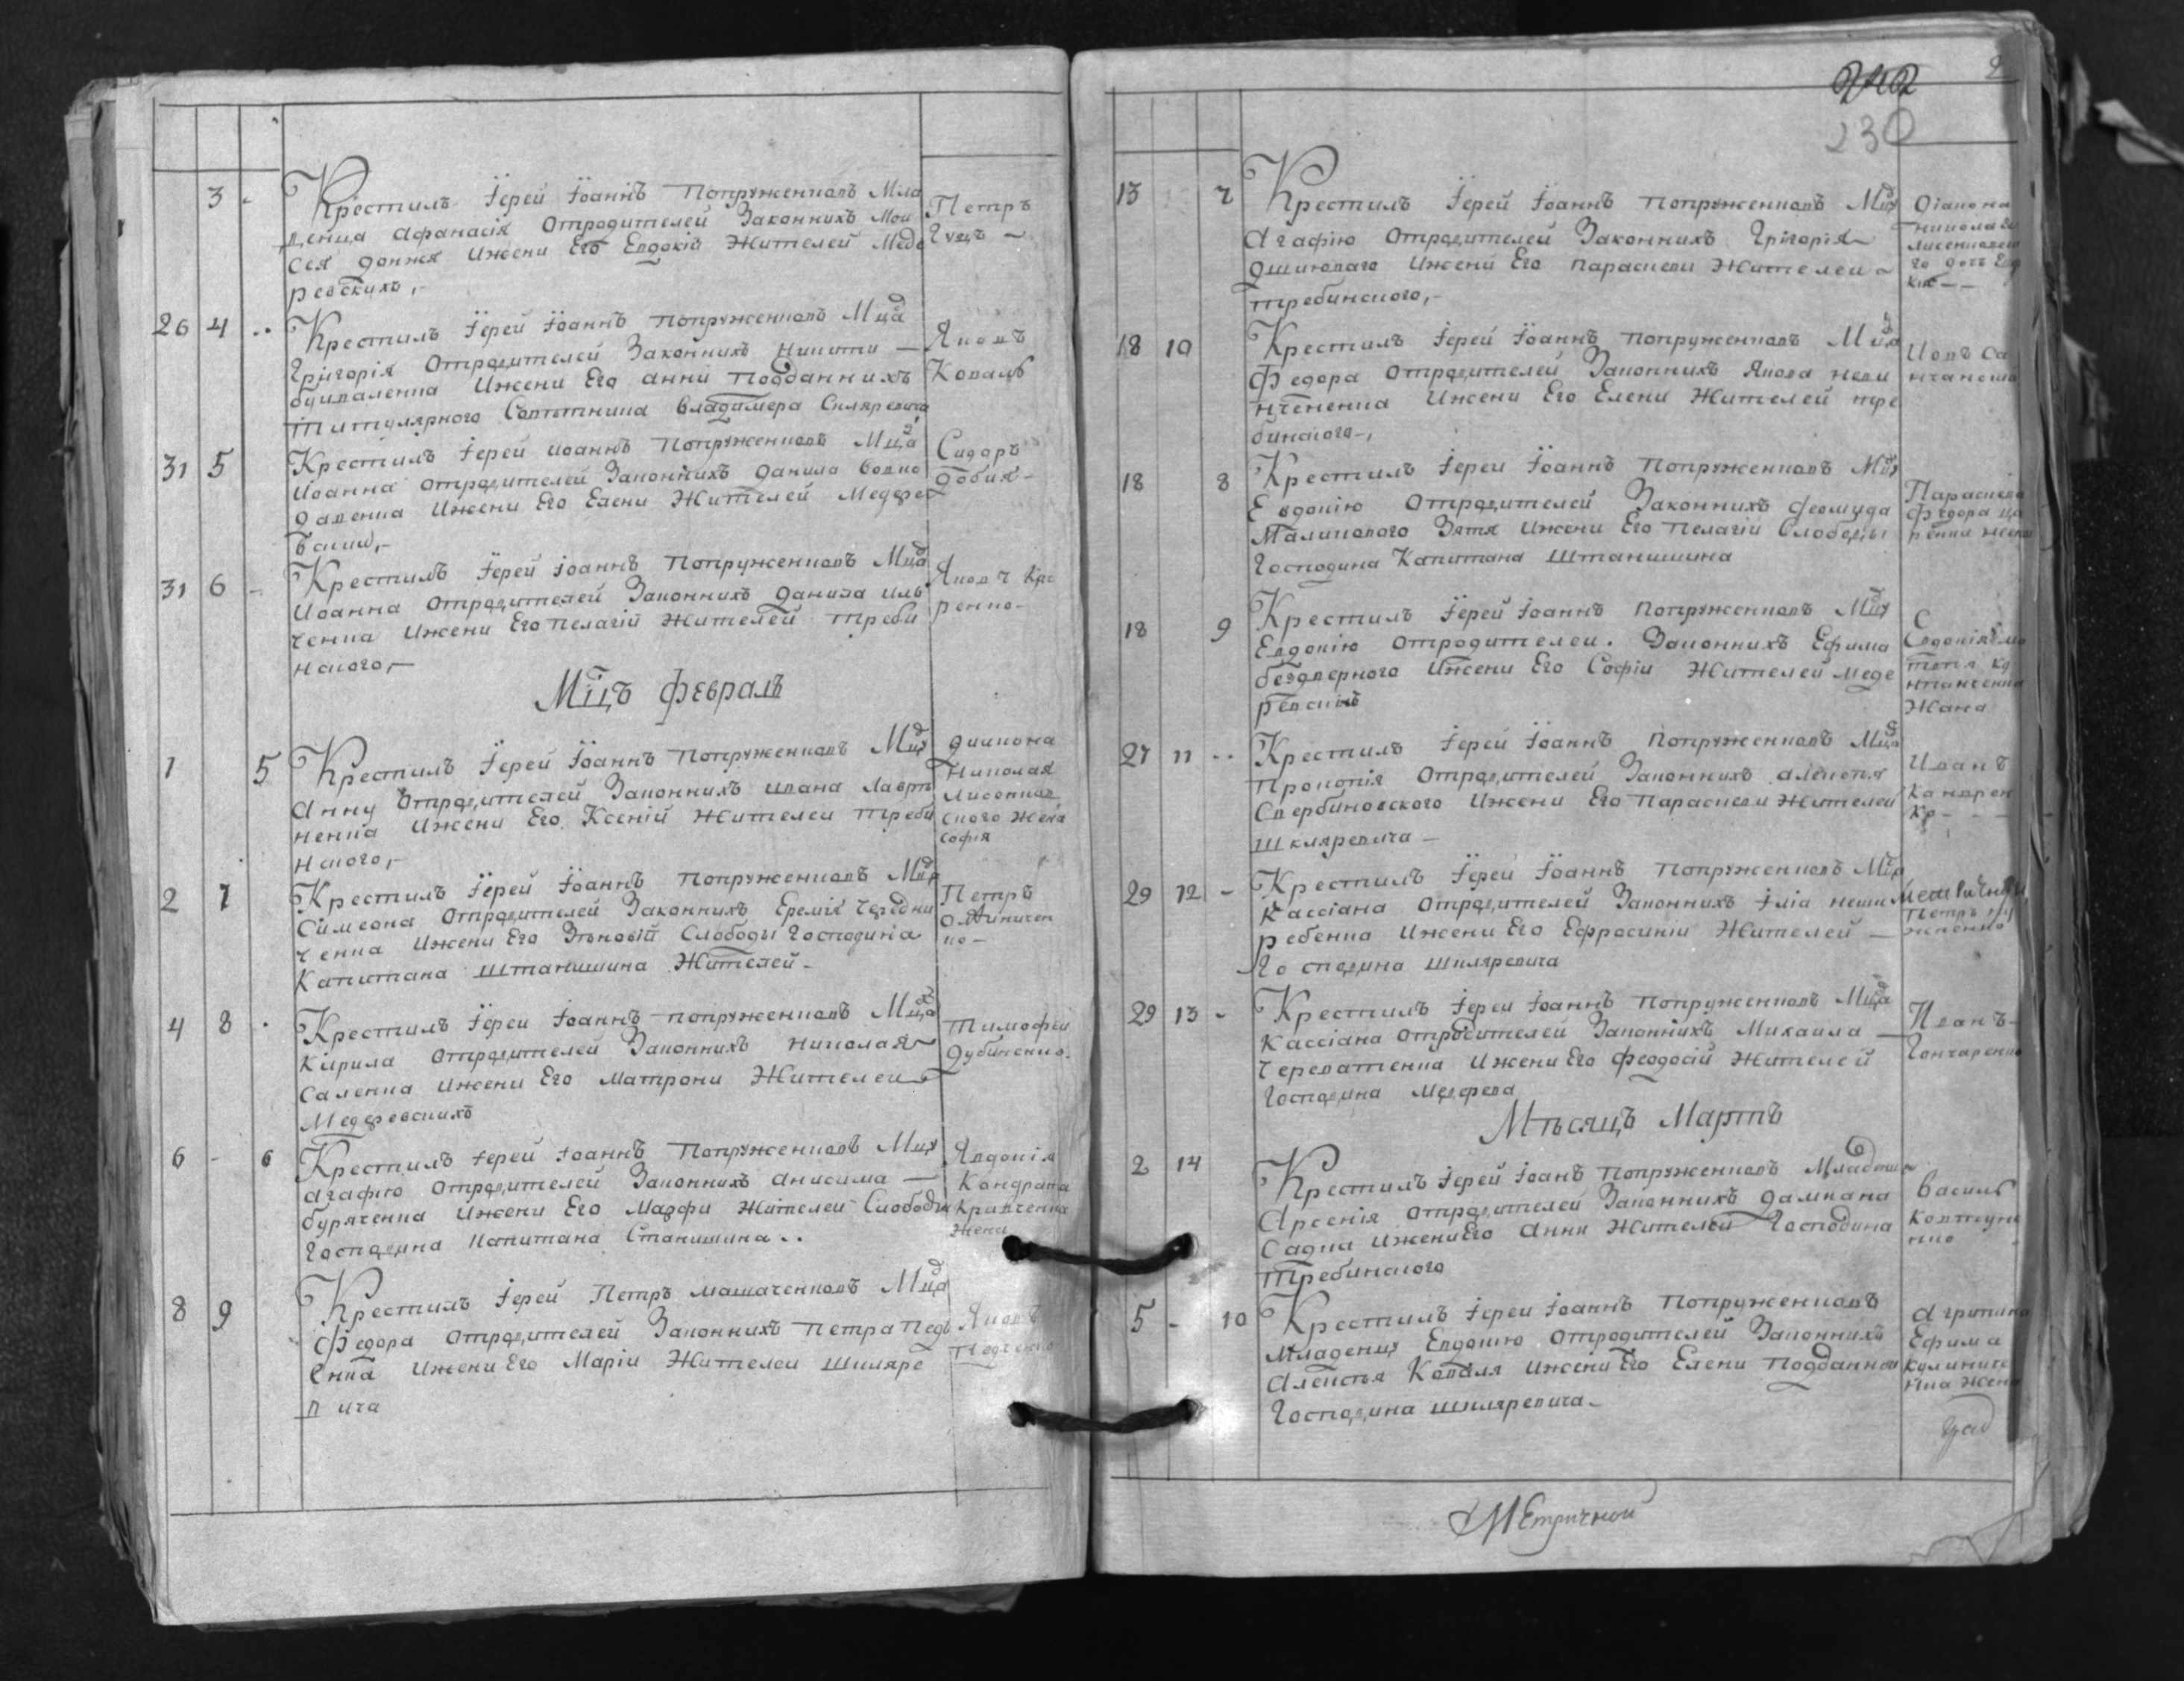 3 -
Крестилъ Іерей Іоаннъ Попруженковъ Мла
денца Афанасія Отродителей Законнихъ Мои
сея Донжя Ижени Его Евдокій Жителей Меде
ревскихъ,-
Петръ
26 4 ..
Крестилъ Іерей Іоаннъ Попруженковъ Мцда
Григорія Отродителей Законнихъ Никити —
Ижени Его Анни Подданнихъ
Титулярного Совѣтника Владимера Скляревича
Яковъ
Коваль
31 5
Крестилъ Іерей Иоаннъ Попруженковъ Мцда
Иоанна отродителей Законнихъ Данила Вовко
давенка Ижени Его Елени Жителей Медфе
Сидоръ
31 6 -
Крестилъ Іерей Іоаннъ Попруженковъ Мцда
Иоанна отродителей Законнихъ Данила Иль
ченка Ижени Его Пелагій Жителей Треби
нского,-
Яковъ
Мцъ Февраль
1 5
Крестилъ Іерей Іоаннъ Попруженковъ Мцду
Анну Отродителей Законнихъ Ивана Лаврѣ
ненка Ижени Его Ксеній Жителей Треби
нского,-
Диякона
Николая
Лисенков
ского Жена
София
2 7
Крестилъ Іерей Іоаннъ Попруженковъ Мцда
Симеона Отродителей Законнихъ Еремія Чередни
ченка Ижени Его Зѣновій Слободы Господина
Капитана Штанишина Жителей -
Петръ
4 8 .
Крестилъ Іереи Іоаннъ Попруженковъ Мцда
Кирила Отродителей Законнихъ Николая
Саленка Ижени Его Матрони Жителей
Медфревскихъ
Тимофей
Дубиненко.
6 - 6
Крестилъ Іерей Іоаннъ Попруженковъ Мцду
Агафию Отродителей Законнихъ Анисима —
Буряченка Ижени Его Марфи Жителей Слободи
Господина Капитана Станишина ..
Явдокія
Кондрата
Кравченка
Жена
8 9
Крестилъ Іерей Петръ Машаченковъ Мцда
Федора Отродителей Законнихъ Петра Педч
енка Ижени Его Маріи Жителей Шкляре
вича
Яковъ
Педченко
242
230
2
13 7
Крестилъ Іерей Іоаннъ Попруженковъ Мцду
Агафію Отродителей Законнихъ Григорія
Ижени Его Параскеви Жителей
Требинского,-
Діакона
Николая
18 10
Крестилъ Іерей Іоаннъ Попруженковъ Мцда
Федора Отродителей Законнихъ Якова
Ижени Его Елени Жителей Тре
бинского-,
18 8
Крестилъ Іереи Іоаннъ Попруженковъ Мцду
Евдокію Отродителей Законнихъ
Зятя Ижени Его Пелагій Слободы
Господина Капитана Штанишина
Параскева
Федора
18 9
Крестилъ Іерей Іоаннъ Попруженковъ Мцду
Евдокію Отродителей. Законнихъ Ефима
Бездверного Ижени Его Софіи Жителей Меде
ревскихъ
Евдокія
Жана
27 11 ..
Крестилъ Іерей Іоаннъ Попруженковъ Мцда
Прокопія Отродителей Законнихъ Алексѣя
Свербиновского Ижени Его Параскеви Жителей
Шкляревича -
Иванъ
29 12 -
Крестилъ Іерей Іоаннъ Попруженковъ Мцда
Кассіана Отродителей Законнихъ Іліа
Ижени Его Ефросиніи Жителей —
Господина Шкляревича
Петръ
29 13 -
Крестилъ Іереи Іоаннъ Попруженковъ Мцда
Кассіана Отродителей Законнихъ Михаила —
Череватенка Ижени Его Феодосій Жителей
Господина Медфева
Иванъ -
Гончаренко
Мѣсяцъ Мартъ
2 14
Крестилъ Іерей Іоанъ Попруженковъ Младенца
Арсенія отродителей Законнихъ Дамиана
Садка Ижени Его Анни Жителей Господина
Требинского
Василь
Ковтуне
нко
5 - 10
Крестилъ Іереи Іоаннъ Попруженковъ
Младенцу Евдокию Отродителей Законнихъ
Алексѣя Коваля Ижени Его Елени Подданнои
Господина Шкляревича -
Агрипина
Ефима
Кулиниче
нка Жена
Метричной